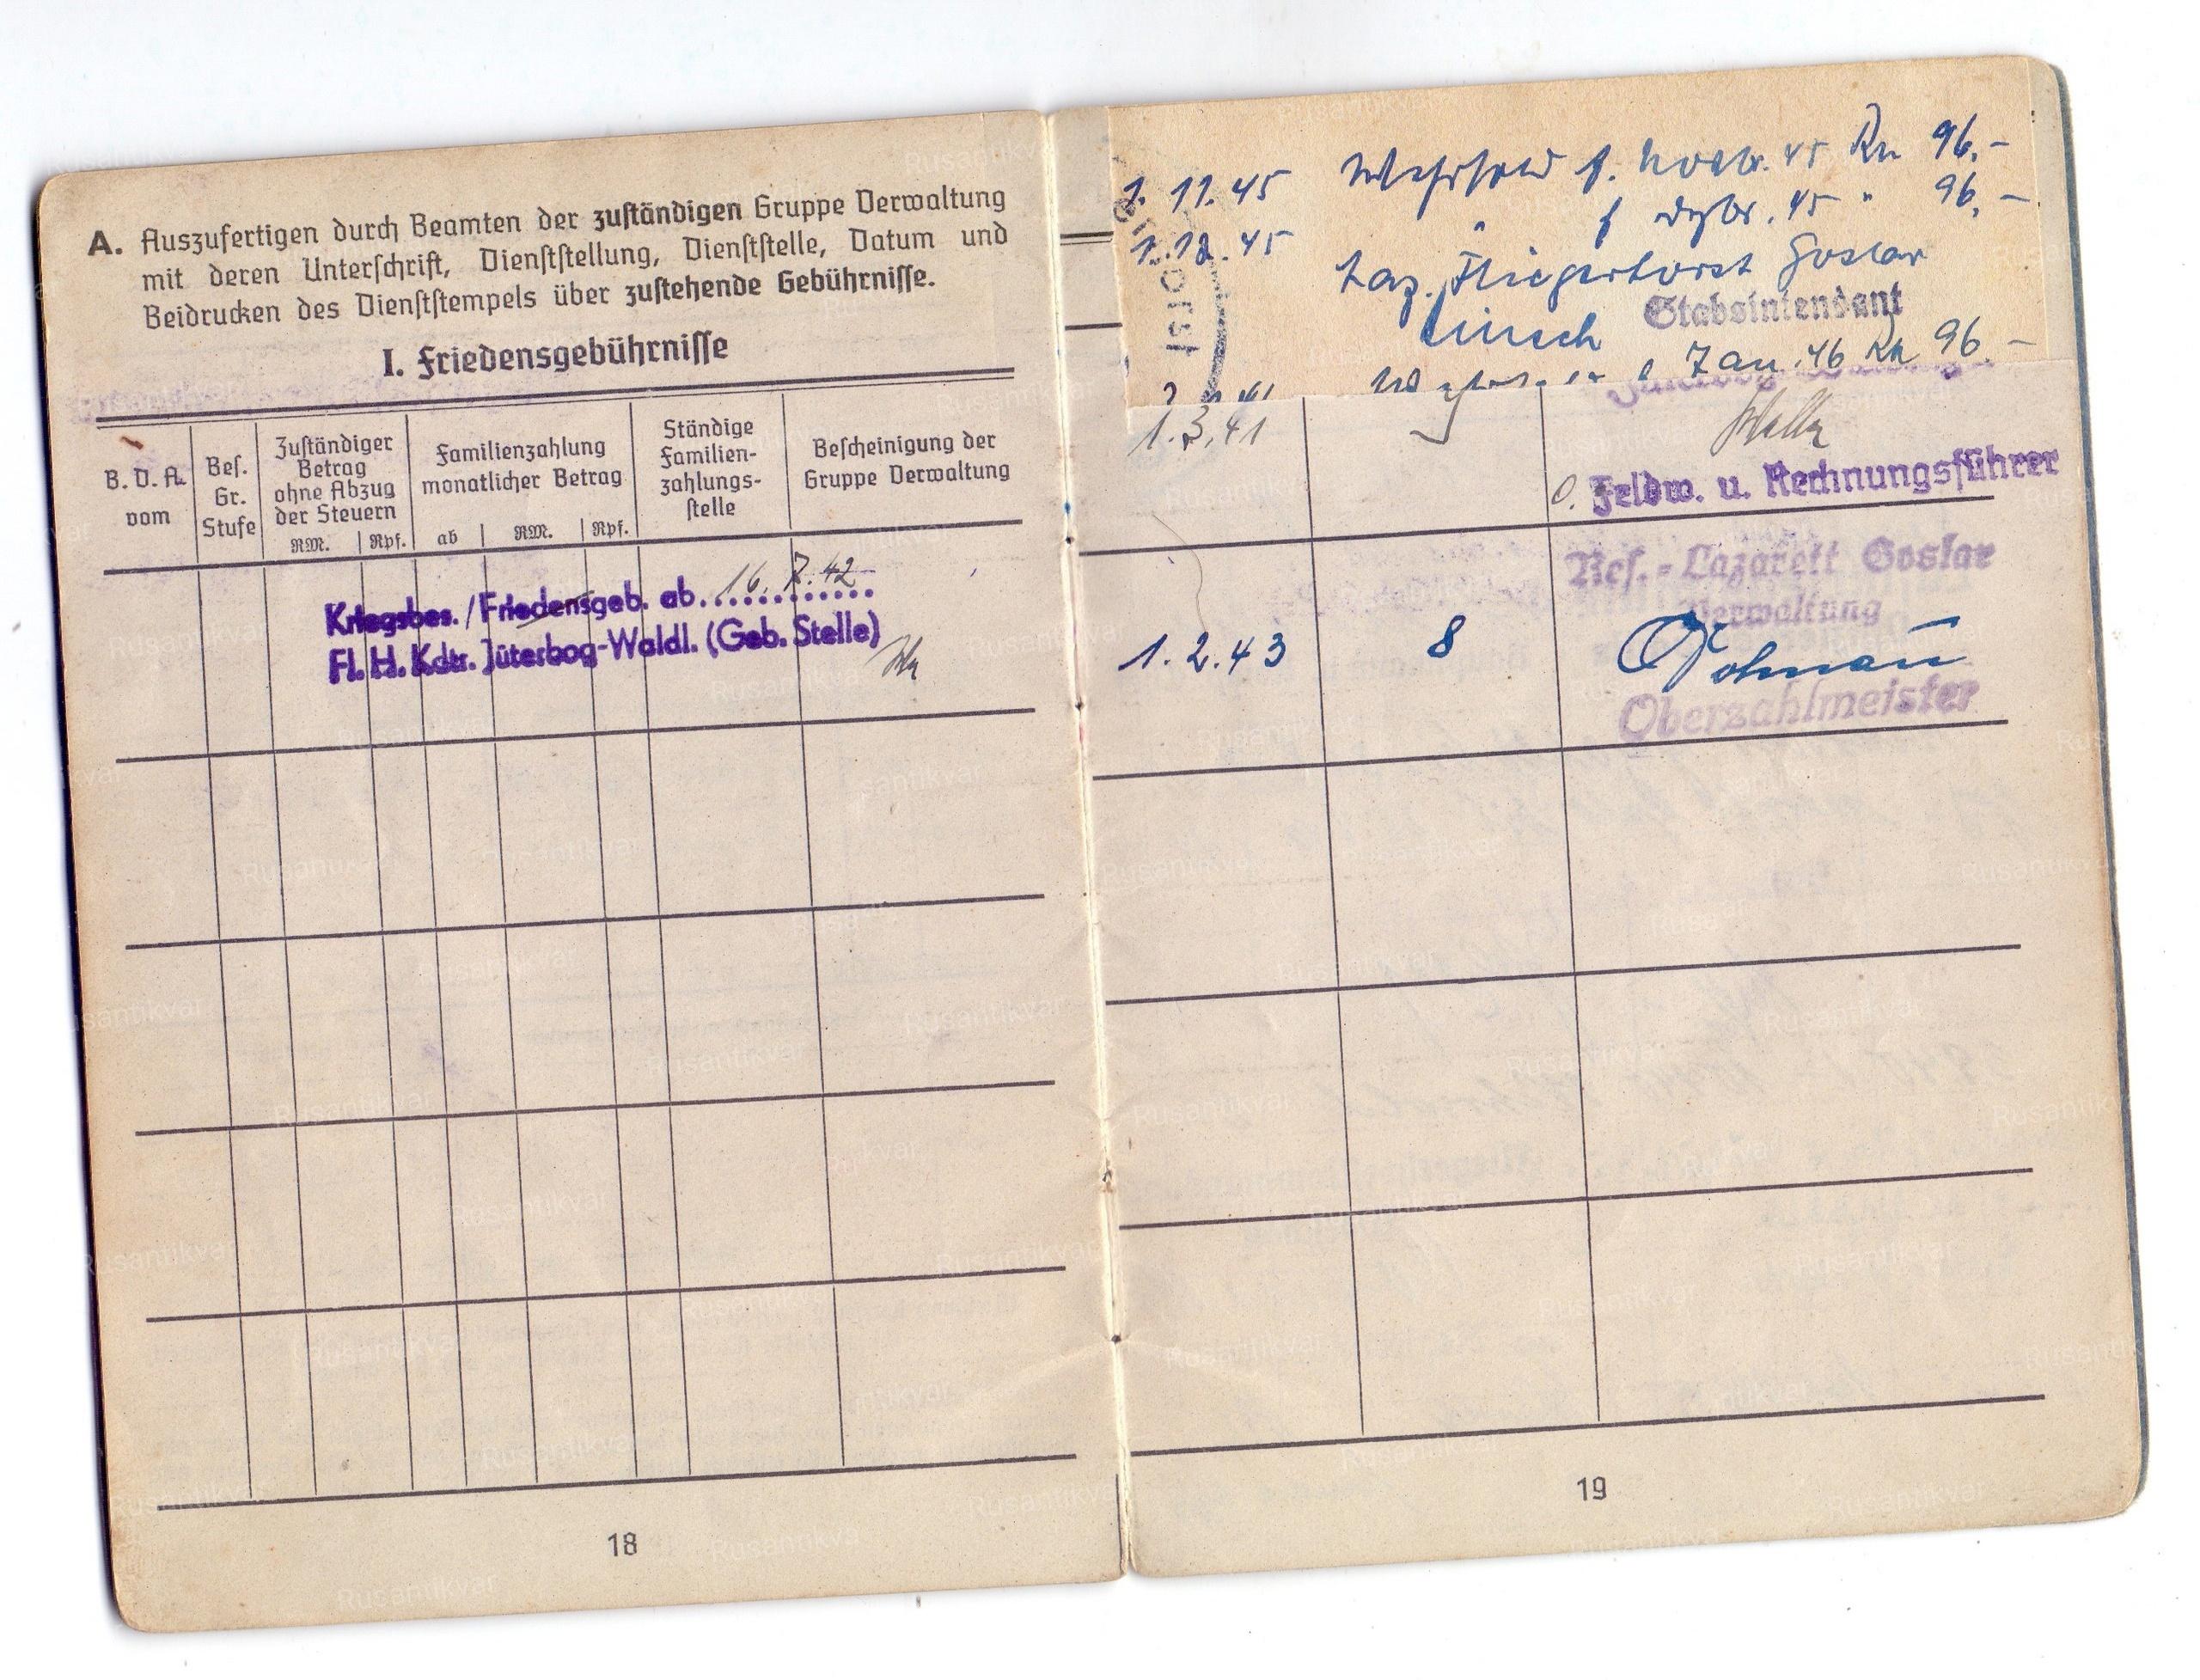 A. Auszufertigen durch Beamten der zuständigen Gruppe Verwaltung
mit deren Unterschrift, Dienststellung, Dienststelle, Datum und
Beidrucken des Dienststempels über zustehende Gebührnisse.
I. Friedensgebührnisse
B. D. A. vom
Bes. Gr. Stufe
Zuständiger Betrag ohne Abzug der Steuern
RM. Rpf.
Familienzahlung monatlicher Betrag
ab RM. Rpf.
Ständige Familien-zahlungs-stelle
Bescheinigung der Gruppe Verwaltung
Kriegsbes./Friedensgeb. ab 16. 7. 42
Fl. H. Kdtr. Jüterbog-Waldl. (Geb. Stelle)
18
1. 11. 45 Wehrsold f. Novbr. 45 Rm 96.-
1. 12. 45 " f Dzbr. 45 " 96.-
Laz. Fliegerhorst Goslar
Stabsintendant
Jan. 46 Rm 96.-
1. 3. 41
Feldw. u. Rechnungsführer
Res.-Lazarett Goslar
Verwaltung
1. 2. 43 8
Oberzahlmeister
19